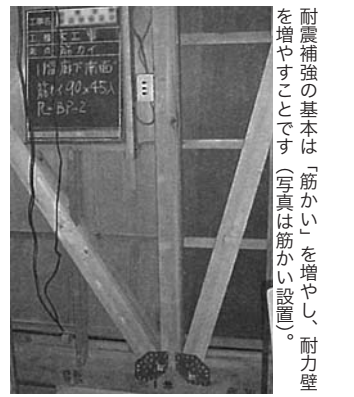 耐震補強の基本は「筋かい」を増やし、耐力壁
を増やすことです（写真は筋かい設置）。
工事名
工種 大工事
筋カイ
1階廊下南面
筋カイ90×45入
R=BP-2